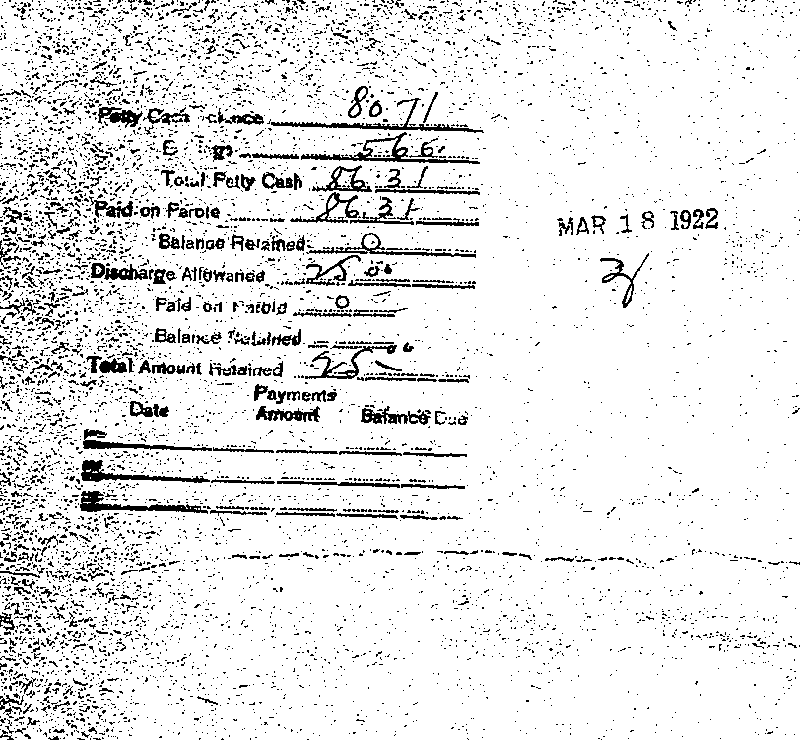 Petty Cash 80.71
5 6 0.
Total Petty Cash 86.31
Paid on Parole 86.31
MAR 18 1922
Balance Retained O
Discharge Allowance 25 00
Paid on Parole 0 —
Balance Retained
Total Amount Retained 25 — 00
Payments
Date Amount Balance Due